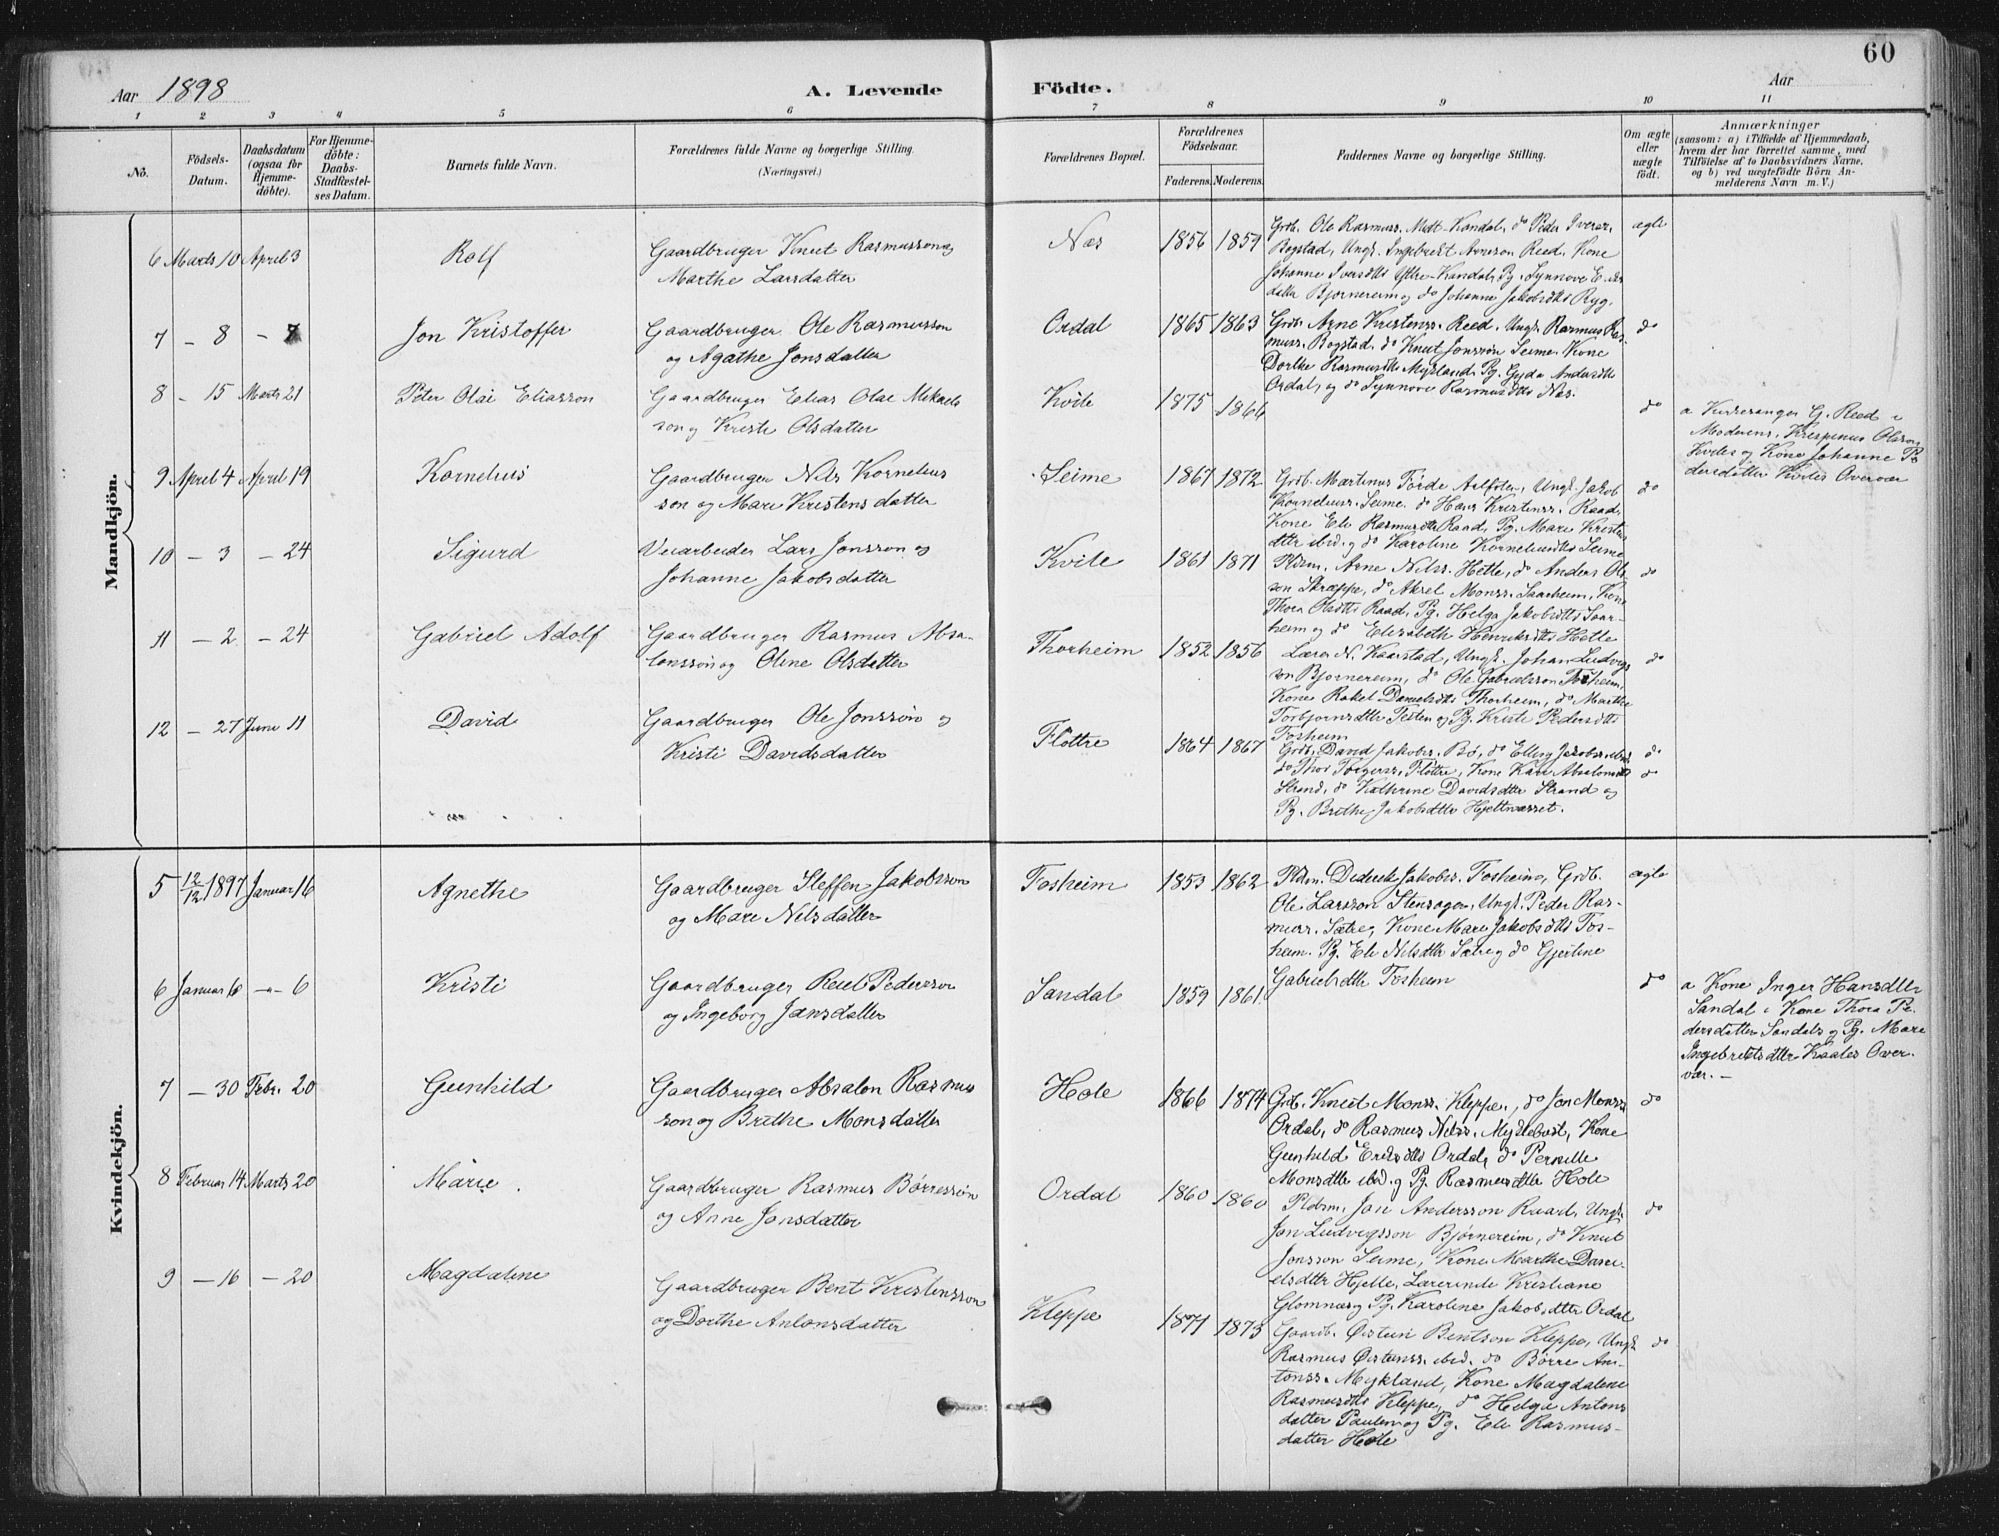 60
Aar 1898
A. Levende
Födte.
Aar
1 2 3 4 5 6 7 8 9 10 11
No.
Födsels-
Datum.
Daabsdatum
(ogsaa for
Hjemme-
döbte).
For Hjemme-
döbte:
Daabs-
Stadfæstel-
ses Datum.
Barnets fulde Navn.
Forældrenes fulde Navne og borgerlige Stilling.
(Næringsvei.)
Forældrenes Bopæl.
Forældrenes
Födselsaar.
Faderens. Moderens.
Faddernes Navne og borgerlige Stilling.
Om ægte
eller
uægte
født.
Anmærkninger
(saasom: a) i Tilfælde af Hjemmedaab,
hvem der har forrettet samme, med
Tilföielse af to Daabsvidners Navne,
og b) ved uægtefödte Börn An-
melderens Navn m. V.)
Mandkjön.
6 Marts 10 April 3
Rolf
Gaardbruger Knut Rasmusson og
Marthe Larsdatter
Nes
1856 1859
Grdb. Ole Rasmuss. Midt-Kandal, do Peder Iverss.
Bogstad, Ungk. Ingebrigt Arneson Reed, Kone
Johanne Iversdtr Ytre-Kandal, Pg. Synnove
datter Bjornereim og do Johanne Jakobsdtr Ryg.
ægte
7 – 8 –
Jon Kristoffer
Gaardbruger Ole Rasmusson
og Agathe Jonsdatter
Ordal
1865 1863
Grdb. Arne Kristenss. Reed, Ungk. Rasmus Ras-
muss. Bogstad, do Knut Jonsson Seime, Kone
Dorthe Rasmusdtr Mykland, Pg. Gyda Andersdtr
Ordal, og do Synnove Rasmusdtr Nes.
do
8 – 15 Marts 21
Peter Olai Eliasson
Gaardbruger Elias Olai Mikaels
son og Kristi Olsdatter
Kvite
1875 1866
do
a Kirkesanger G. Reed
Moderens, Krespinus Olsson
Kvites og Kone Johanne Pe
dersdatter Kvites Overvær
9 April 4 April 19
Kornelius
Gaardbruger Nils Kornelius
son og Mari Kristensdatter
Seime
1867 1872
Grdb. Martinus Förde Aalfoten, Ungk. Jakob
Korneliuss. Seime, do Hans Kristenss. Raad,
Kone Eli Rasmusdtr Raad, Pg. Mari Kristens
dtr ibid. og do Karoline Korneliusdtr Seime
do
10 – 3 – 24
Sigurd
Veiarbeider Lars Jonsson og
Johanne Jakobsdatter
Kvite
1861 1871
Pldsm. Arne Nilss. Hetle, do Anders Ole
son Skreppe, do Aksel Monss. Saarheim, Kone
Thora Olsdtr Raad, Pg. Helga Jakobsdtr Saar-
heim og do Elisabeth Henriksdtr Hetle
do
11 – 2 – 24
Gabriel Adolf
Gaardbruger Rasmus Absa-
lonsson og Oline Olsdatter
Thorheim
1852 1856
Lærer N. Kaarstad, Ungk. Johan Ludvigs
son Bjornereim, do Ole Gabrielsson Fosheim,
Kone Rakel Danielsdtr Thorheim, do Marthe
Torbjornsdtr Testen og Pg. Kristi Pedersdtr
Fosheim
do
12 – 27 Juni 11
David
Gaardbruger Ole Jonssøn og
Kristi Davidsdatter
Flöttre
1864 1867
Grdb. David Jakobss. Bö, do Elling Jakobss. ibid.
do Thor Torgerss. Flöttre, Kone Kari Absalonsdtr
Strand, do Kathrine Davidsdtr Strand og
Pg. Brithe Jakobsdtr Hjeltnæsset.
do
do
Kvindekjön.
5 12/12 1897 Januar 16
Agnethe
Gaardbruger Steffen Jakobsson
og Mari Nilsdatter
Fosheim
1853 1862
Pldsm. Diderik Jakobss. Fosheim, Grdb.
Ole Larsson Stensager, Ungk. Peder Ras-
muss. Sætre, Kone Mari Jakobsdtr Fos-
heim. Pg. Eli Nilsdtr Sætre og do Gjertine
Gabrielsdtr Fosheim
ægte
6 Januar 6 – 6
Kristi
Gaardbruger Reiel Pedersson
og Ingeborg Jansdatter
Sandal
1859 1861
do
a Kone Inger Hansdtr
Sandal i Kone Thora Pe-
dersdatter Sandals og Pg. Mari
Ingebrigtsdtr Kaales Over-
vær. –
7 – 30 Febr. 20
Gunhild
Gaardbruger Absalon Rasmus
son og Brithe Monsdatter
Hole
1866 1874
Grdb. Knut Monss. Kleppe, do Jon Monss
Ordal, do Rasmus Nilss. Myklebust, Kone
Gunhild Eriksdtr Ordal, do Pernille
Monsdtr ibid. og Pg. Rasmusdtr Hole
do
8 Februar 14 Marts 20
Marie
Gaardbruger Rasmus Børressøn
og Anne Jonsdatter
Ordal
1860 1860
Pldsm. Jon Andersson Raad, Ungk.
Jon Ludvigsson Bjørnereim, do Knut
Jonsson Seime, Kone Marthe Dani-
elsdtr Hjelle, Lærerinde Kristiane
Glomnes og Pg. Karoline Jakobsdtr Ordal
do
9 – 16 – 20
Magdalene
Gaardbruger Bent Kristensson
og Dorthe Antonsdatter
Kleppe
1871 1873
Gaardb. Østein Bentson Kleppe, Ungk
Rasmus Østenss. ibid. do Børre An-
tonss. Mykland, Kone Magdalene
Rasmusdtr Kleppe, do Helga Antons
datter Paulen og Pg. Eli Rasmus-
datter Hole
do